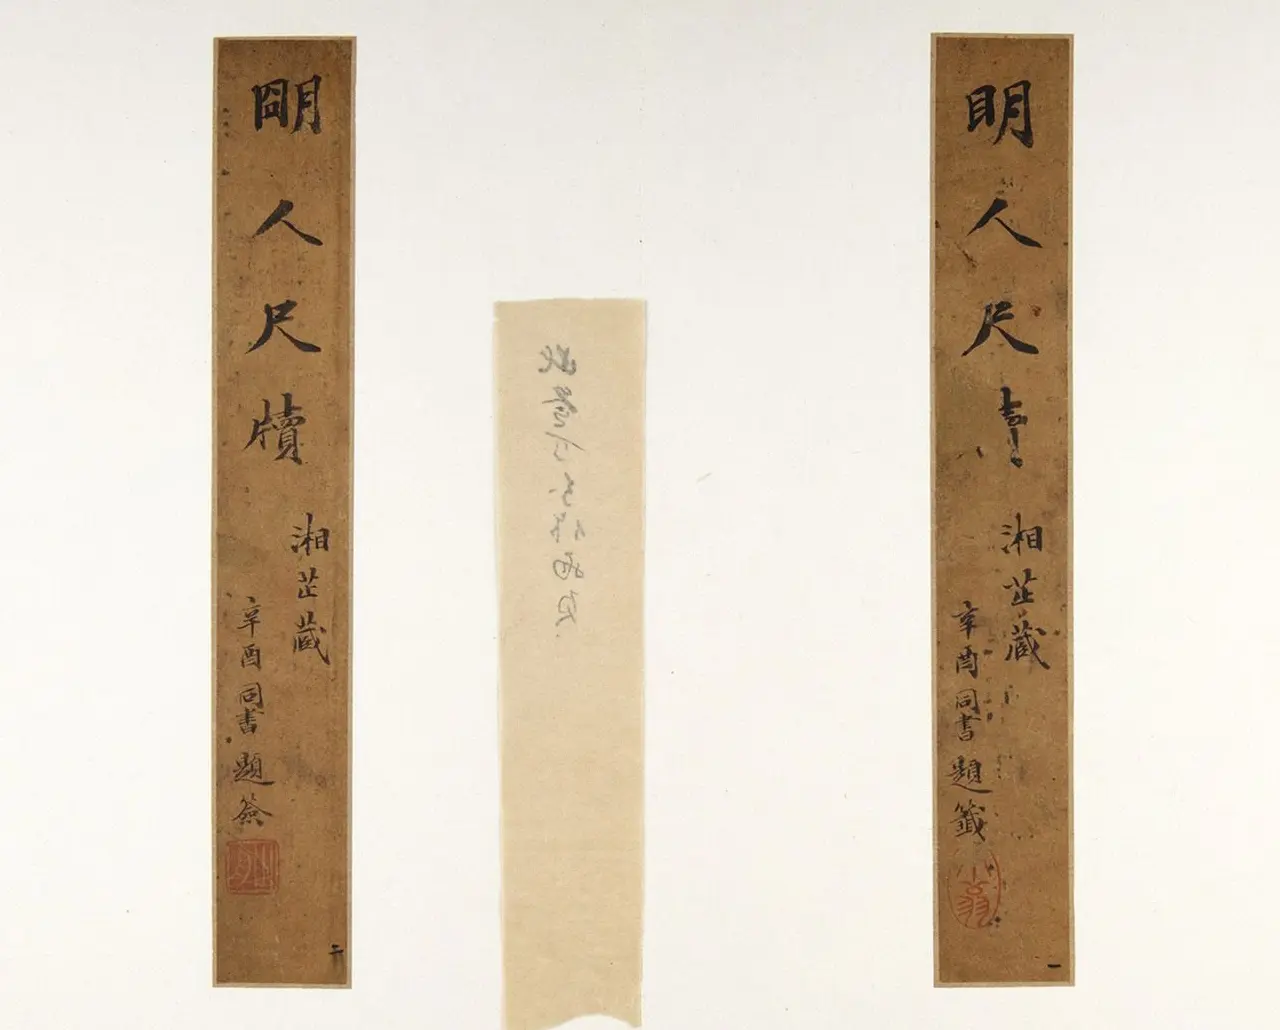 明人尺
湘芷藏
辛酉同書題籤
一
明人尺牘
湘芷藏
辛酉同書題簽
二